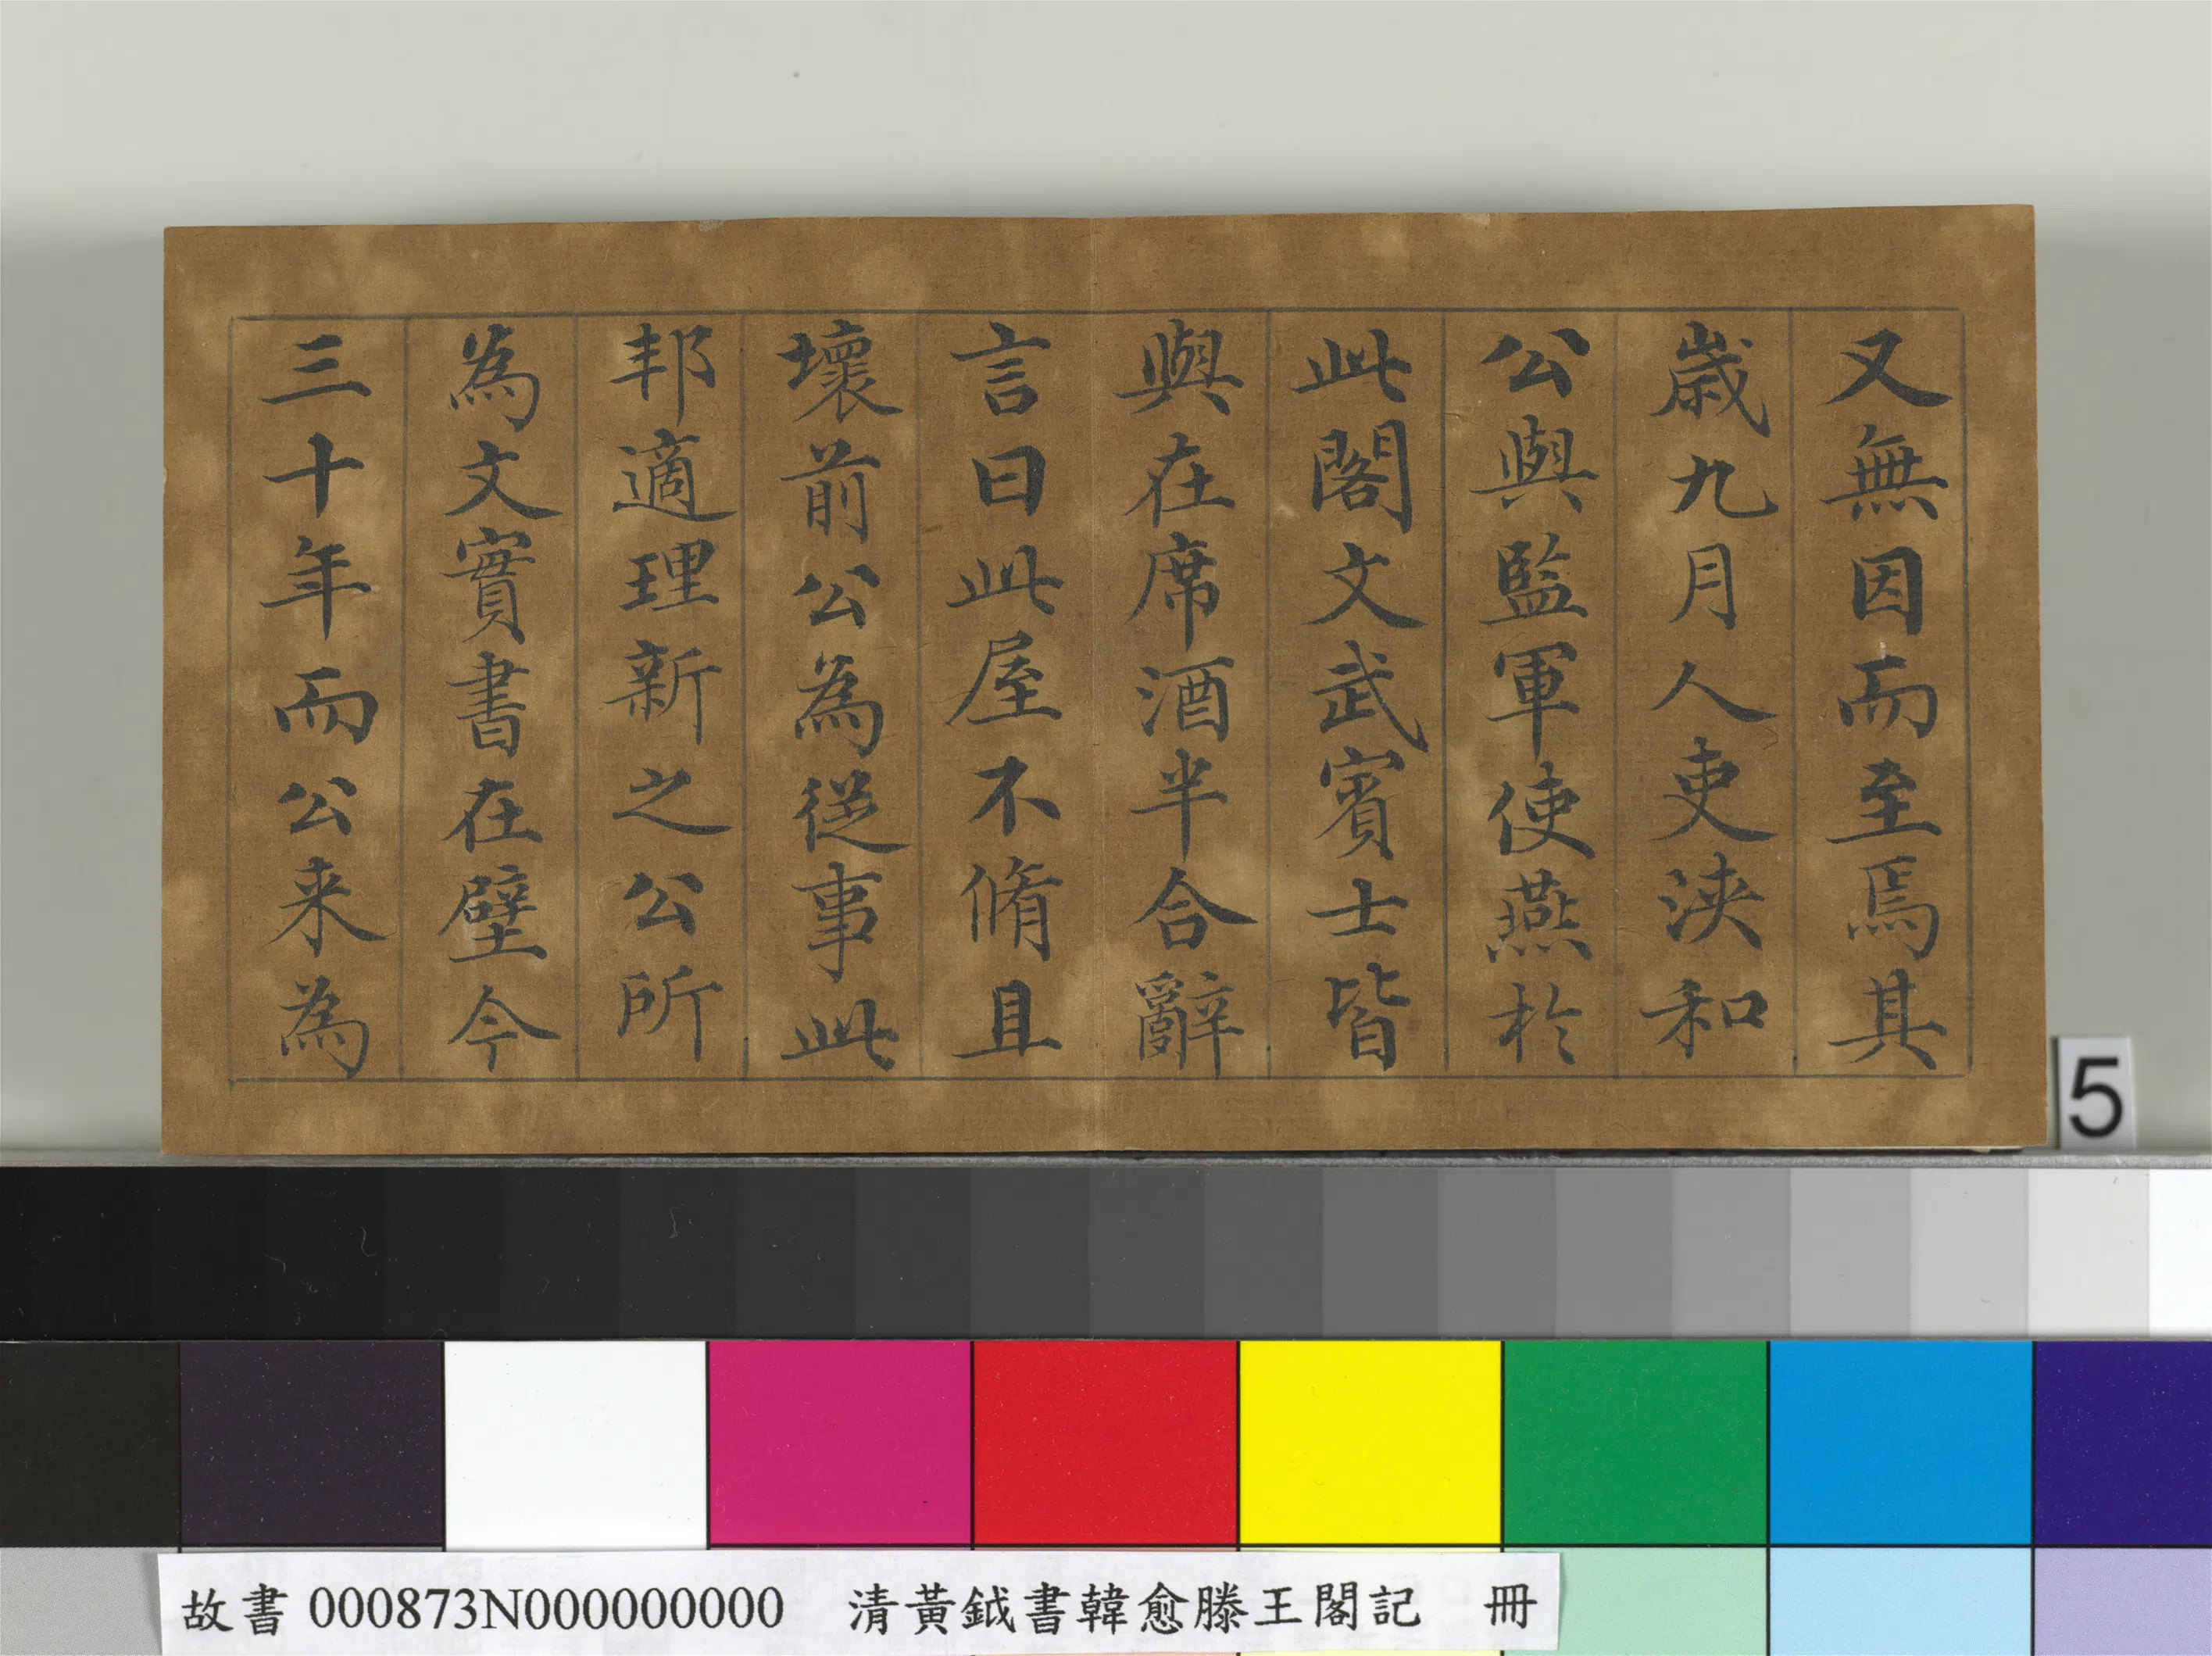 又無因而至焉其
歲九月人吏浹和
公與監軍使燕於
此閣文武賓士皆
與在席酒半合辭
言曰此屋不脩且
壞前公為從事此
邦適理新之公所
為文實書在壁今
三十年而公来為
5
故書 000873N000000000 清黃鉞書韓愈滕王閣記 冊